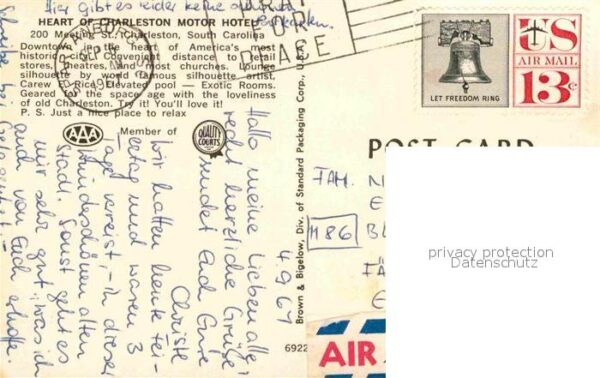 Hier gibt es leider keine schönen
HEART OF CHARLESTON MOTOR HOTEL
200 Meeting St., Charleston, South Carolina
Downtown, in the heart of America's most
historic city. Convenient distance to retail
stores, theatres, and most churches. Lounge
silhouette by world famous silhouette artist,
Carew Rice. Elevated pool — Exotic Rooms.
Geared for the space age with the loveliness
of old Charleston. Try it! You'll love it!
P. S. Just a nice place to relax
AAA
Member of
QUALITY
COURTS
PRAY
FOR
PEACE
SEP
LET FREEDOM RING
US
AIR MAIL
13c
POST CARD
Brown & Bigelow, Div. of Standard Packaging Corp., U.S.A.
6922
4.9.67
Hallo meine Lieben alle,
recht herzliche Grüße
sendet Euch Eure
Christe
Wir hatten heute Fei-
ertag und waren 3
Tage verreist - in dieser
wunderschönen alten
Stadt. Sonst geht es
mir sehr gut, was ich
auch von Euch hoffe.
Schreibe bei
FAM.
H 86
privacy protection
Datenschutz
AIR